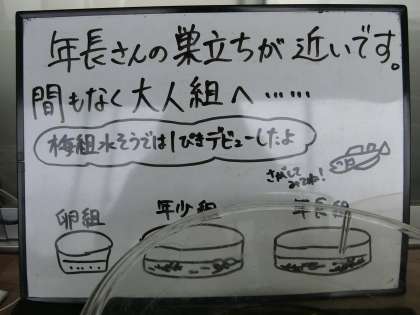 年長さんの巣立ちが近いです。
間もなく大人組へ……
梅組水そうでは1ぴきデビューしたよ
さがして
みてね!
卵組
年少組
年長組